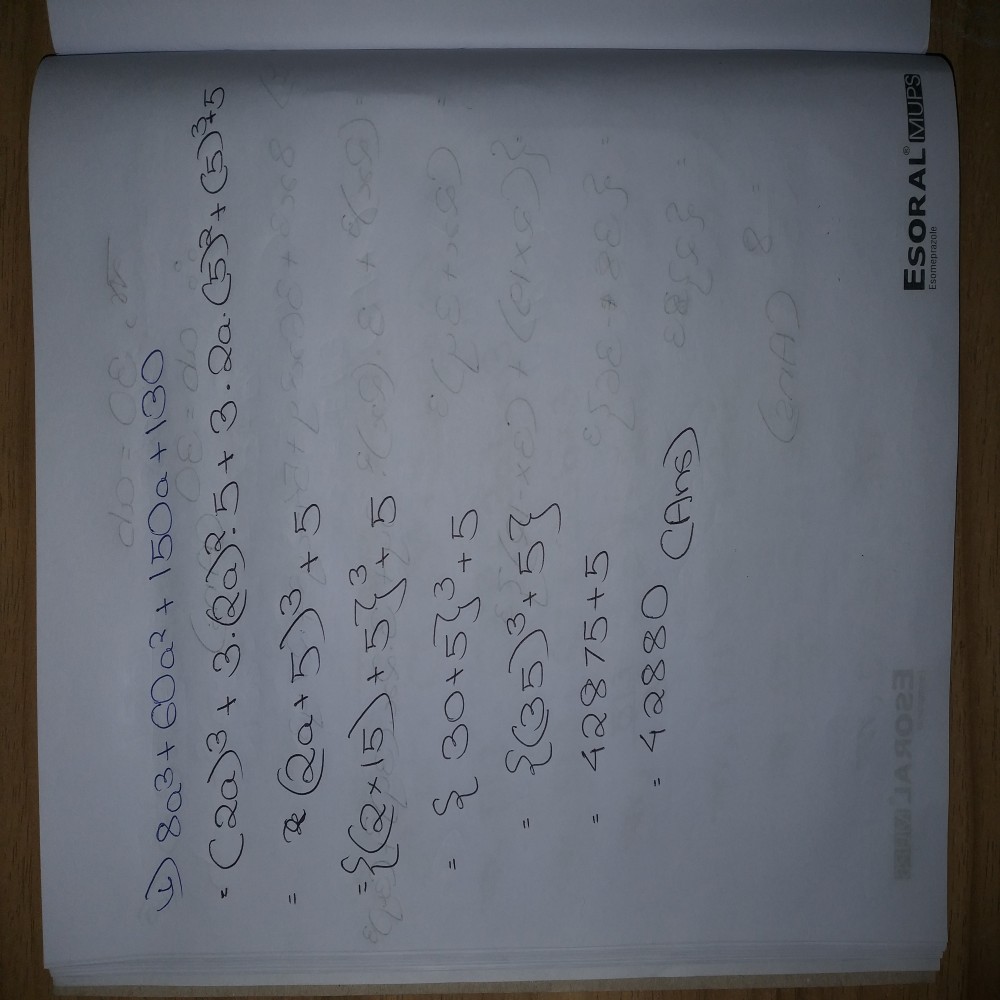 i) 8a³ + 60a² + 150a + 130
= (2a)³ + 3.(2a)².5 + 3.2a.(5)² + (5)³+5
= (2a+5)³ + 5
= {(2×15)+5}³ + 5
= {30+5}³ + 5
= {(35)³+5}
= 42875+5
= 42880 (Ans)
ESORAL® MUPS
Esomeprazole